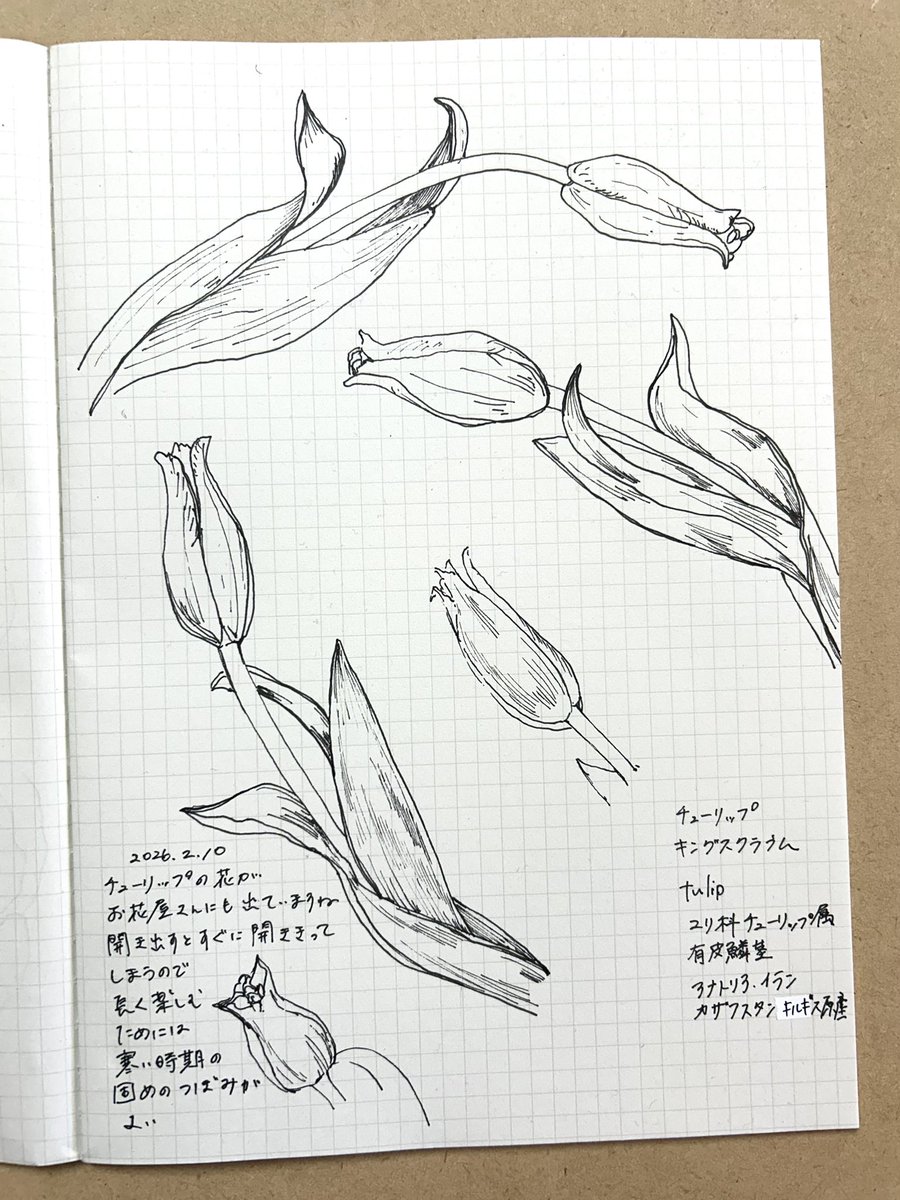 2026.2.10
チューリップの花が
お花屋さんにも出ていますね
開き出すとすぐに開ききって
しまうので
長く楽しむ
ためには
寒い時期の
固めのつぼみが
よい
チューリップ
キングスクラウム
tulip
ユリ科チューリップ属
有皮鱗茎
アナトリア.イラン
カザフスタン キルギス原産